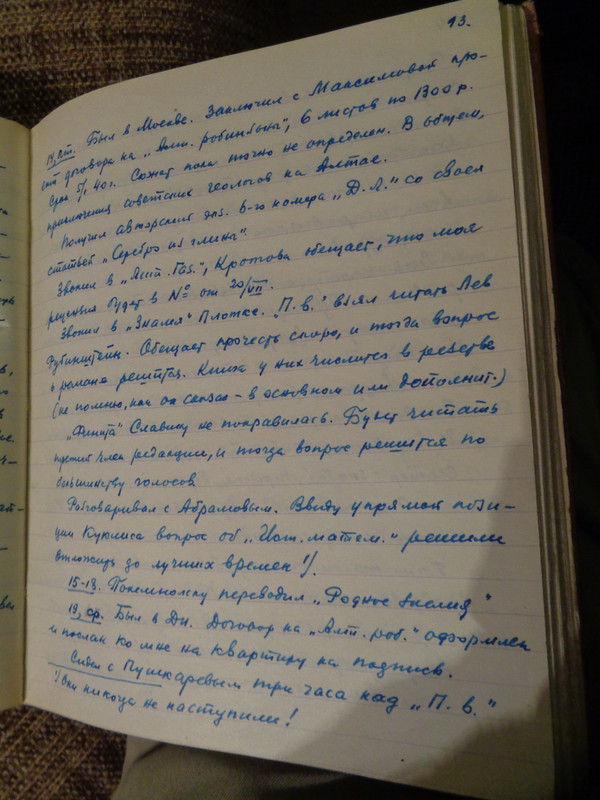 13.
14, пт. Был в Москве. Заключил с Максимовой про-
ект договора на „Алт. робинзоны", 6 листов по 1300 р.
Срок 5/I 40 г. Сюжет пока точно не определен. В общем,
приключения советских геологов на Алтае.
Получил авторский экз. 6-го номера „Д. Л." со своей
статьей „Серебро из глины".
Звонил в „Лит. Газ.", Кротова обещает, что моя
рецензия будет в № от 20/VII.
Звонил в „Знамя" Плотке. „П. в." взял читать Лев
Рубинштейн. Обещает прочесть скоро, и тогда вопрос
о романе решится. Книга у них числится в резерве
(не помню, как он сказал – в основном или дополнит.)
„Финита" Славину не понравилась. Будет читать
третий член редакции, и тогда вопрос решится по
большинству голосов.
Разговаривал с Абрамовым. Ввиду упрямой пози-
ции Куклиса вопрос об „Ист. матем." решили
отложить до лучших времен 1/.
15-18. Понемножку переводил „Родное
19, ср. Был в Ди. Договор на „Алт. роб." оформлен
и послан ко мне на квартиру на подпись.
Сидел с Пушкаревым три часа над „П. в."
1/ Они никогда не наступили!